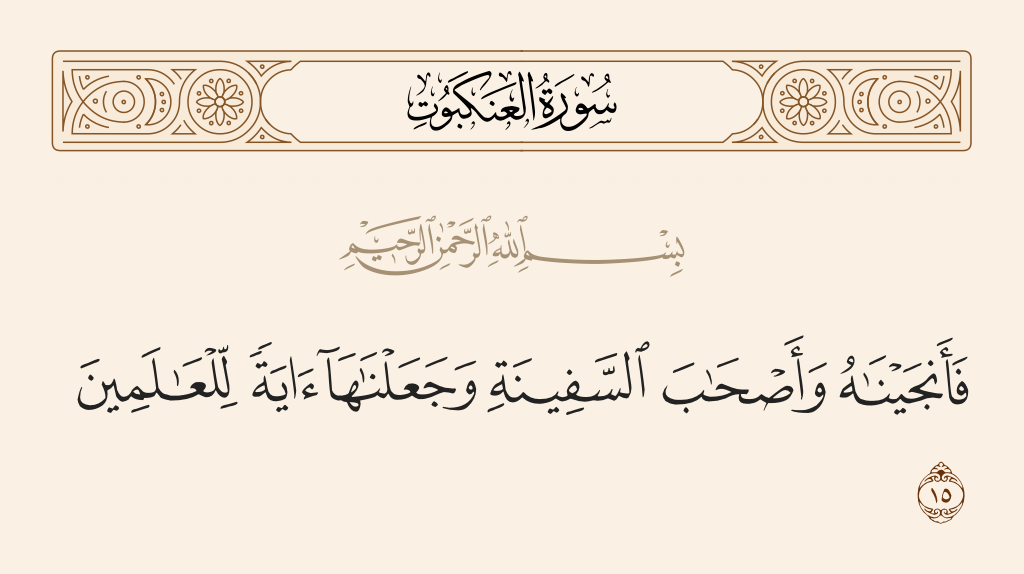 سُورَةُ العَنكَبُوتِ
بِسْمِ ٱللَّهِ ٱلرَّحْمَٰنِ ٱلرَّحِيمِ
فَأَنجَيْنَٰهُ وَأَصْحَٰبَ ٱلسَّفِينَةِ وَجَعَلْنَٰهَآ ءَايَةً لِّلْعَٰلَمِينَ
١٥